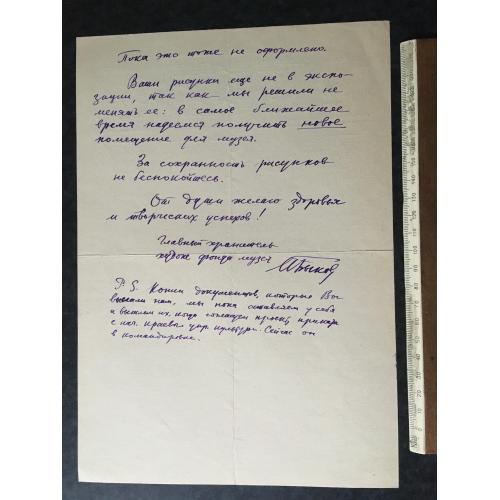 Пока это тоже не оформлено.
Ваши рисунки еще не в экспо-
зиции, так как мы решили не
менять ее: в самое ближайшее
время надеемся получить новое
помещение для музея.
За сохранность рисунков
не беспокойтесь.
От души желаю здоровья
и творческих успехов!
Главный хранитель
фонда музея
P.S. Копии документов, которые Вы
выслали нам, мы пока оставляем у себя
и вышлем их, когда согласуем проект приказа
с нач. краевого упр. культуры. Сейчас он
в командировке.